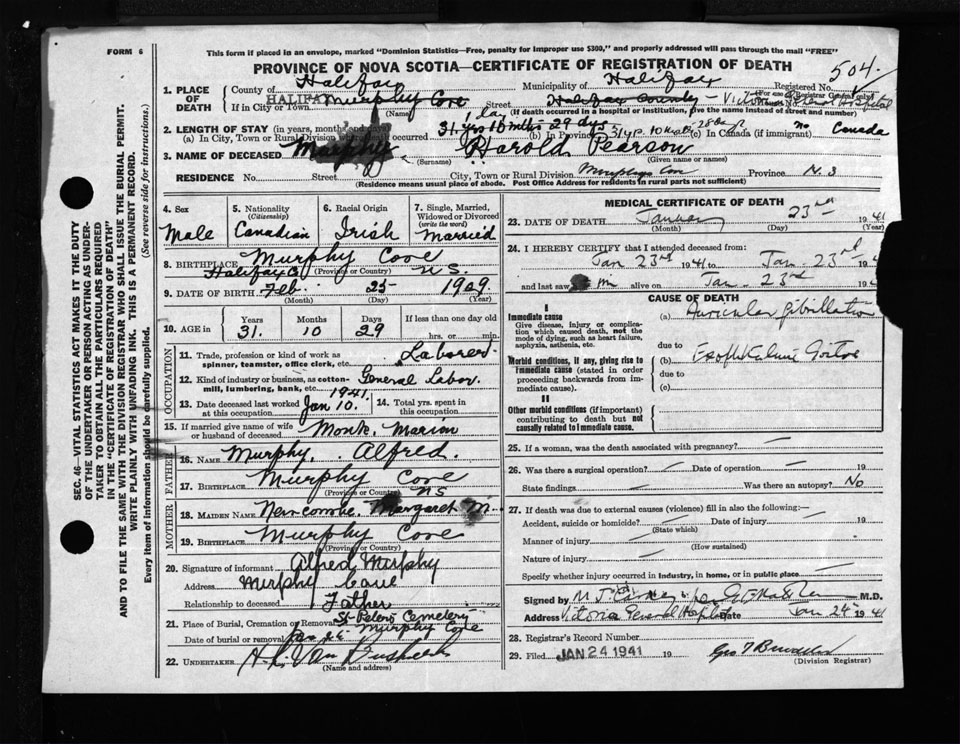 FORM 6
This form if placed in an envelope, marked "Dominion Statistics—Free, penalty for improper use $300," and properly addressed will pass through the mail "FREE"
PROVINCE OF NOVA SCOTIA—CERTIFICATE OF REGISTRATION OF DEATH
504
1. PLACE OF DEATH
County of Halifax
Municipality of Halifax
Registered No.
(For use of Registrar General only)
If in City or Town HALIFAX Murphy Cove (Name)
Street Halifax County Victoria General Hospital
(If death occurred in a hospital or institution, give the name instead of street and number)
1 day
2. LENGTH OF STAY (in years, months and days)
(a) In City, Town or Rural Division where death occurred 31 yrs 10 mths - 29 dys
(b) In Province 31 yrs 10 mths 28 days
(c) In Canada (if immigrant) no Canada
3. NAME OF DECEASED Murphy (Surname) Harold Pearson (Given name or names)
RESIDENCE No. Street City, Town or Rural Division Murphys Cove Province N.S
(Residence means usual place of abode. Post Office Address for residents in rural parts not sufficient)
SEC. 46—VITAL STATISTICS ACT MAKES IT THE DUTY
OF THE UNDERTAKER OR PERSON ACTING AS UNDER-
TAKER TO OBTAIN ALL THE PARTICULARS REQUIRED
IN THE "CERTIFICATE OF REGISTRATION OF DEATH"
AND TO FILE THE SAME WITH THE DIVISION REGISTRAR WHO SHALL ISSUE THE BURIAL PERMIT.
WRITE PLAINLY WITH UNFADING INK. THIS IS A PERMANENT RECORD.
Every item of information should be carefully supplied. (See reverse side for instructions.)
4. Sex
Male
5. Nationality (Citizenship)
Canadian
6. Racial Origin
Irish
7. Single, Married, Widowed or Divorced (write the word)
Married
8. BIRTHPLACE Murphy Cove
Halifax Co (Province or Country) N.S.
9. DATE OF BIRTH Feb. 25 1909
(Month) (Day) (Year)
10. AGE in
Years Months Days If less than one day
31. 10 29 hrs. or min.
OCCUPATION
11. Trade, profession or kind of work as spinner, teamster, office clerk, etc. Laborer
12. Kind of industry or business, as cotton-mill, lumbering, bank, etc. General Labor.
13. Date deceased last worked at this occupation Jan 10. 1941.
14. Total yrs. spent in this occupation
15. If married give name of wife or husband of deceased Monk, Marion
FATHER
16. NAME Murphy, Alfred.
17. BIRTHPLACE Murphy Cove
(Province or Country) NS
MOTHER
18. MAIDEN NAME Newcombe, Margaret M.
19. BIRTHPLACE Murphy Cove
(Province or Country)
20. Signature of informant Alfred Murphy
Address Murphy Cove
Relationship to deceased Father
21. Place of Burial, Cremation or Removal St Peters Cemetery
Murphy Cove
Date of burial or removal Jan 26
22. UNDERTAKER
(Name and address)
MEDICAL CERTIFICATE OF DEATH
23. DATE OF DEATH January 23rd 1941
(Month) (Day) (Year)
24. I HEREBY CERTIFY that I attended deceased from:
Jan 23rd 1941 to Jan. 23rd 194
and last saw him alive on Jan. 23rd 194
CAUSE OF DEATH
I
Immediate cause
Give disease, injury or complication which caused death, not the mode of dying, such as heart failure, asphyxia, asthenia, etc.
(a) Auricular fibrillation
due to
Morbid conditions, if any, giving rise to immediate cause (stated in order proceeding backwards from immediate cause).
(b) Exophthalmic Goitre
due to
(c)
II
Other morbid conditions (if important) contributing to death but not causally related to immediate cause.
25. If a woman, was the death associated with pregnancy? —
26. Was there a surgical operation? — Date of operation — 19
State findings — Was there an autopsy? No
27. If death was due to external causes (violence) fill in also the following:—
Accident, suicide or homicide? — Date of injury — 19
(State which)
Manner of injury —
(How sustained)
Nature of injury —
Specify whether injury occurred in industry, in home, or in public place —
Signed by M.D.
Address Victoria General Hospital Date Jan 24 1941
28. Registrar's Record Number
29. Filed JAN 24 1941 19 Geo
(Division Registrar)